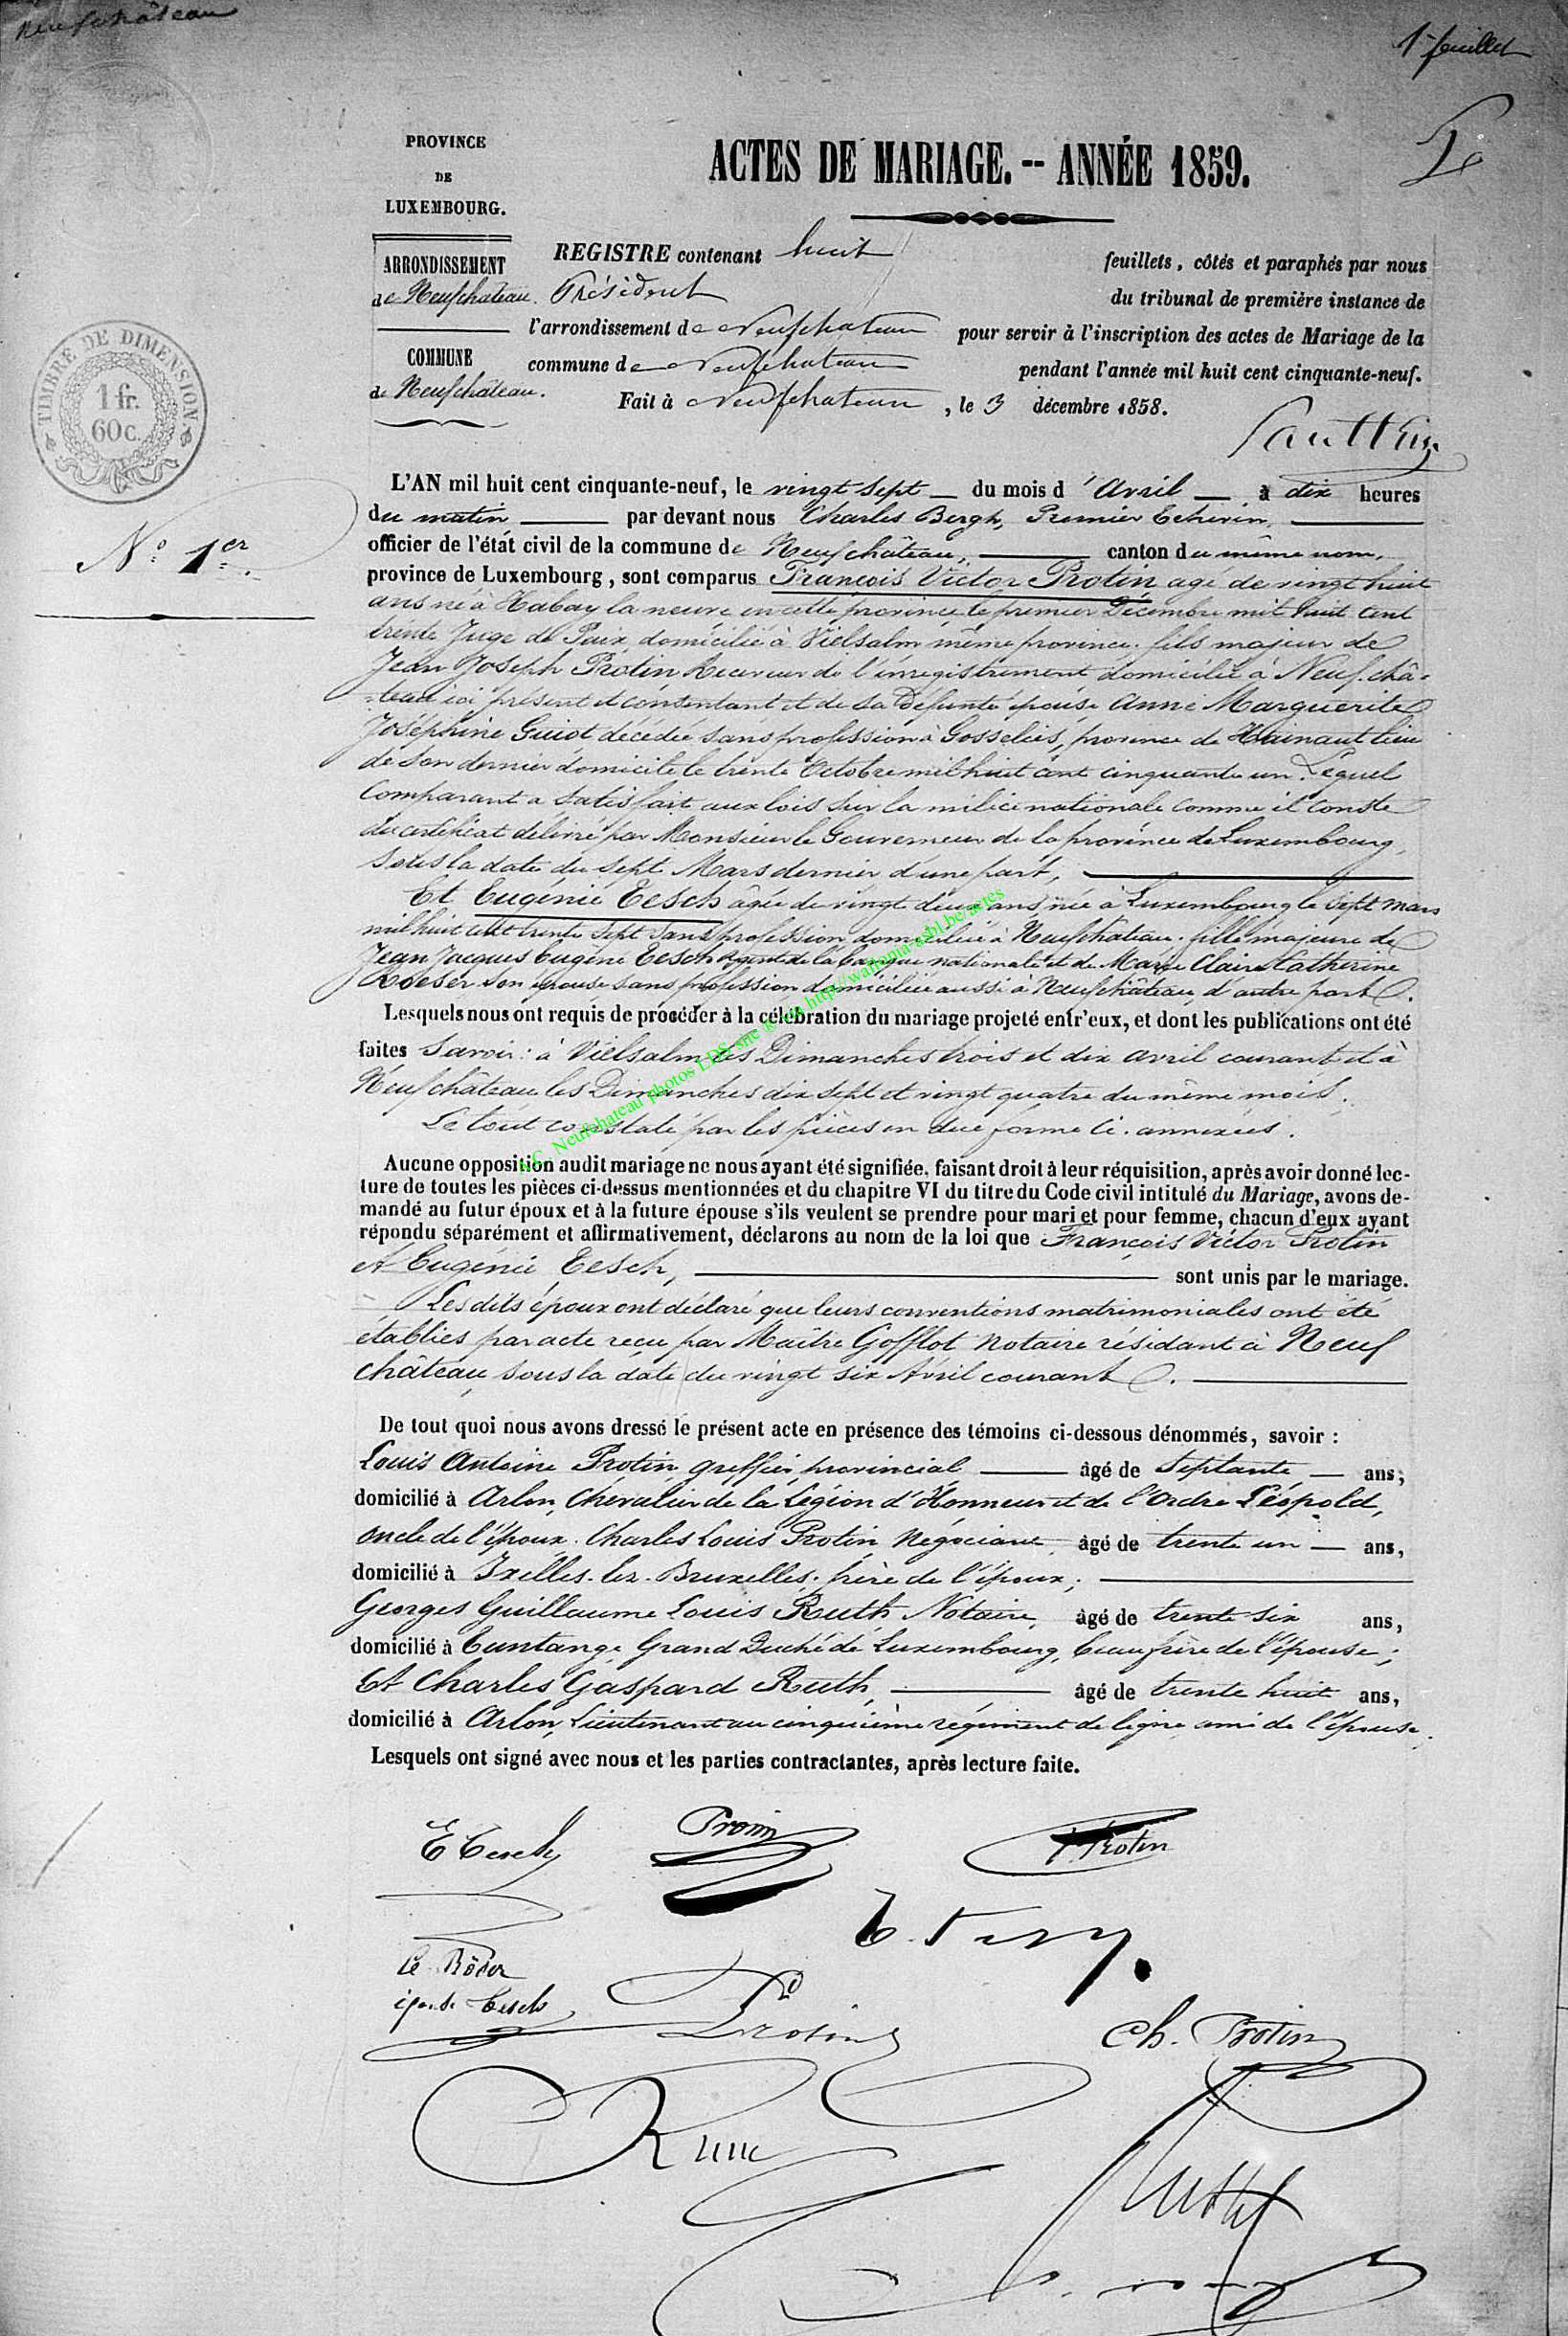 Neufchâteau
1er feuillet
PROVINCE
DE
LUXEMBOURG.
ACTES DE MARIAGE. -- ANNÉE 1859.
ARRONDISSEMENT
de Neufchateau.
COMMUNE
de Neufchâteau.
REGISTRE contenant huit feuillets, côtés et paraphés par nous
Président du tribunal de première instance de
l'arrondissement de Neufchateau pour servir à l'inscription des actes de Mariage de la
commune de Neufchateau pendant l'année mil huit cent cinquante-neuf.
Fait à Neufchateau, le 3 décembre 1858.
TIMBRE DE DIMENSION
1 fr.
60 c.
N.° 1er.
L'AN mil huit cent cinquante-neuf, le vingt sept du mois d'Avril à dix heures
du matin par devant nous Charles Bergh, Premier Echevin,
officier de l'état civil de la commune de Neufchâteau, canton du même nom,
province de Luxembourg, sont comparus François Victor Protin agé de vingt huit
ans né à Habay la neuve en cette province le premier Décembre mil huit cent
trente Juge de Paix, domicilié à Vielsalm même province. fils majeur de
Jean Joseph Protin Receveur de l'enregistrement domicilié à Neufchâ-
teau ici présent et consentant et de sa Défunte épouse Anne Marguerite
Joséphine Guiot décédée sans profession à Gosselies, province de Hainaut lieu
de son dernier domicile le trente Octobre mil huit cent cinquante un. Lequel
Comparant a satisfait aux lois sur la milice nationale comme il conste
du certificat délivré par Monsieur le Gouverneur de la province de Luxembourg,
sous la date du sept Mars dernier d'une part,
Et Eugénie Tesch âgée de vingt deux ans née à Luxembourg le Sept mars
mil huit cent trente sept sans profession domiciliée à Neufchateau. fille majeure de
Jean Jacques Eugène Tesch Agent de la banque nationale et de Marie Claire Catherine
Roeser son épouse sans profession domiciliée aussi à Neufchâteau d'autre part.
Lesquels nous ont requis de procéder à la célébration du mariage projeté entr'eux, et dont les publications ont été
faites Savoir: à Vielsalm les Dimanches trois et dix avril courant et à
Neufchâteau les Dimanches dix sept et vingt quatre du même mois.
Le tout constaté par les pièces en due forme ci-annexées.
A.C. Neufchateau photos LDS site http://wallonia-asbl.be/actes
Aucune opposition audit mariage ne nous ayant été signifiée, faisant droit à leur réquisition, après avoir donné lec-
ture de toutes les pièces ci-dessus mentionnées et du chapitre VI du titre du Code civil intitulé du Mariage, avons de-
mandé au futur époux et à la future épouse s'ils veulent se prendre pour mari et pour femme, chacun d'eux ayant
répondu séparément et affirmativement, déclarons au nom de la loi que François Victor Protin
et Eugénie Tesch, sont unis par le mariage.
Les dits époux ont déclaré que leurs conventions matrimoniales ont été
établies par acte reçu par Maître Gofflot Notaire résidant à Neuf
château, sous la date du vingt six Avril courant.
De tout quoi nous avons dressé le présent acte en présence des témoins ci-dessous dénommés, savoir :
Louis Antoine Protin, greffier provincial âgé de Septante ans;
domicilié à Arlon, Chevalier de la Légion d'Honneur et de l'Ordre Léopold,
oncle de l'époux. Charles Louis Protin Négociant âgé de trente un ans,
domicilié à Ixelles-lez-Bruxelles, frère de l'époux;
Georges Guillaume Louis Ruth Notaire, âgé de trente six ans,
domicilié à Euntange, Grand Duché de Luxembourg, beau frère de l'épouse;
Et Charles Gaspard Ruth, âgé de trente huit ans,
domicilié à Arlon, Lieutenant au cinquième régiment de ligne ami de l'épouse.
Lesquels ont signé avec nous et les parties contractantes, après lecture faite.
E Tesch Protin Protin
Röser
épouse Tesch Protin Ch. Protin